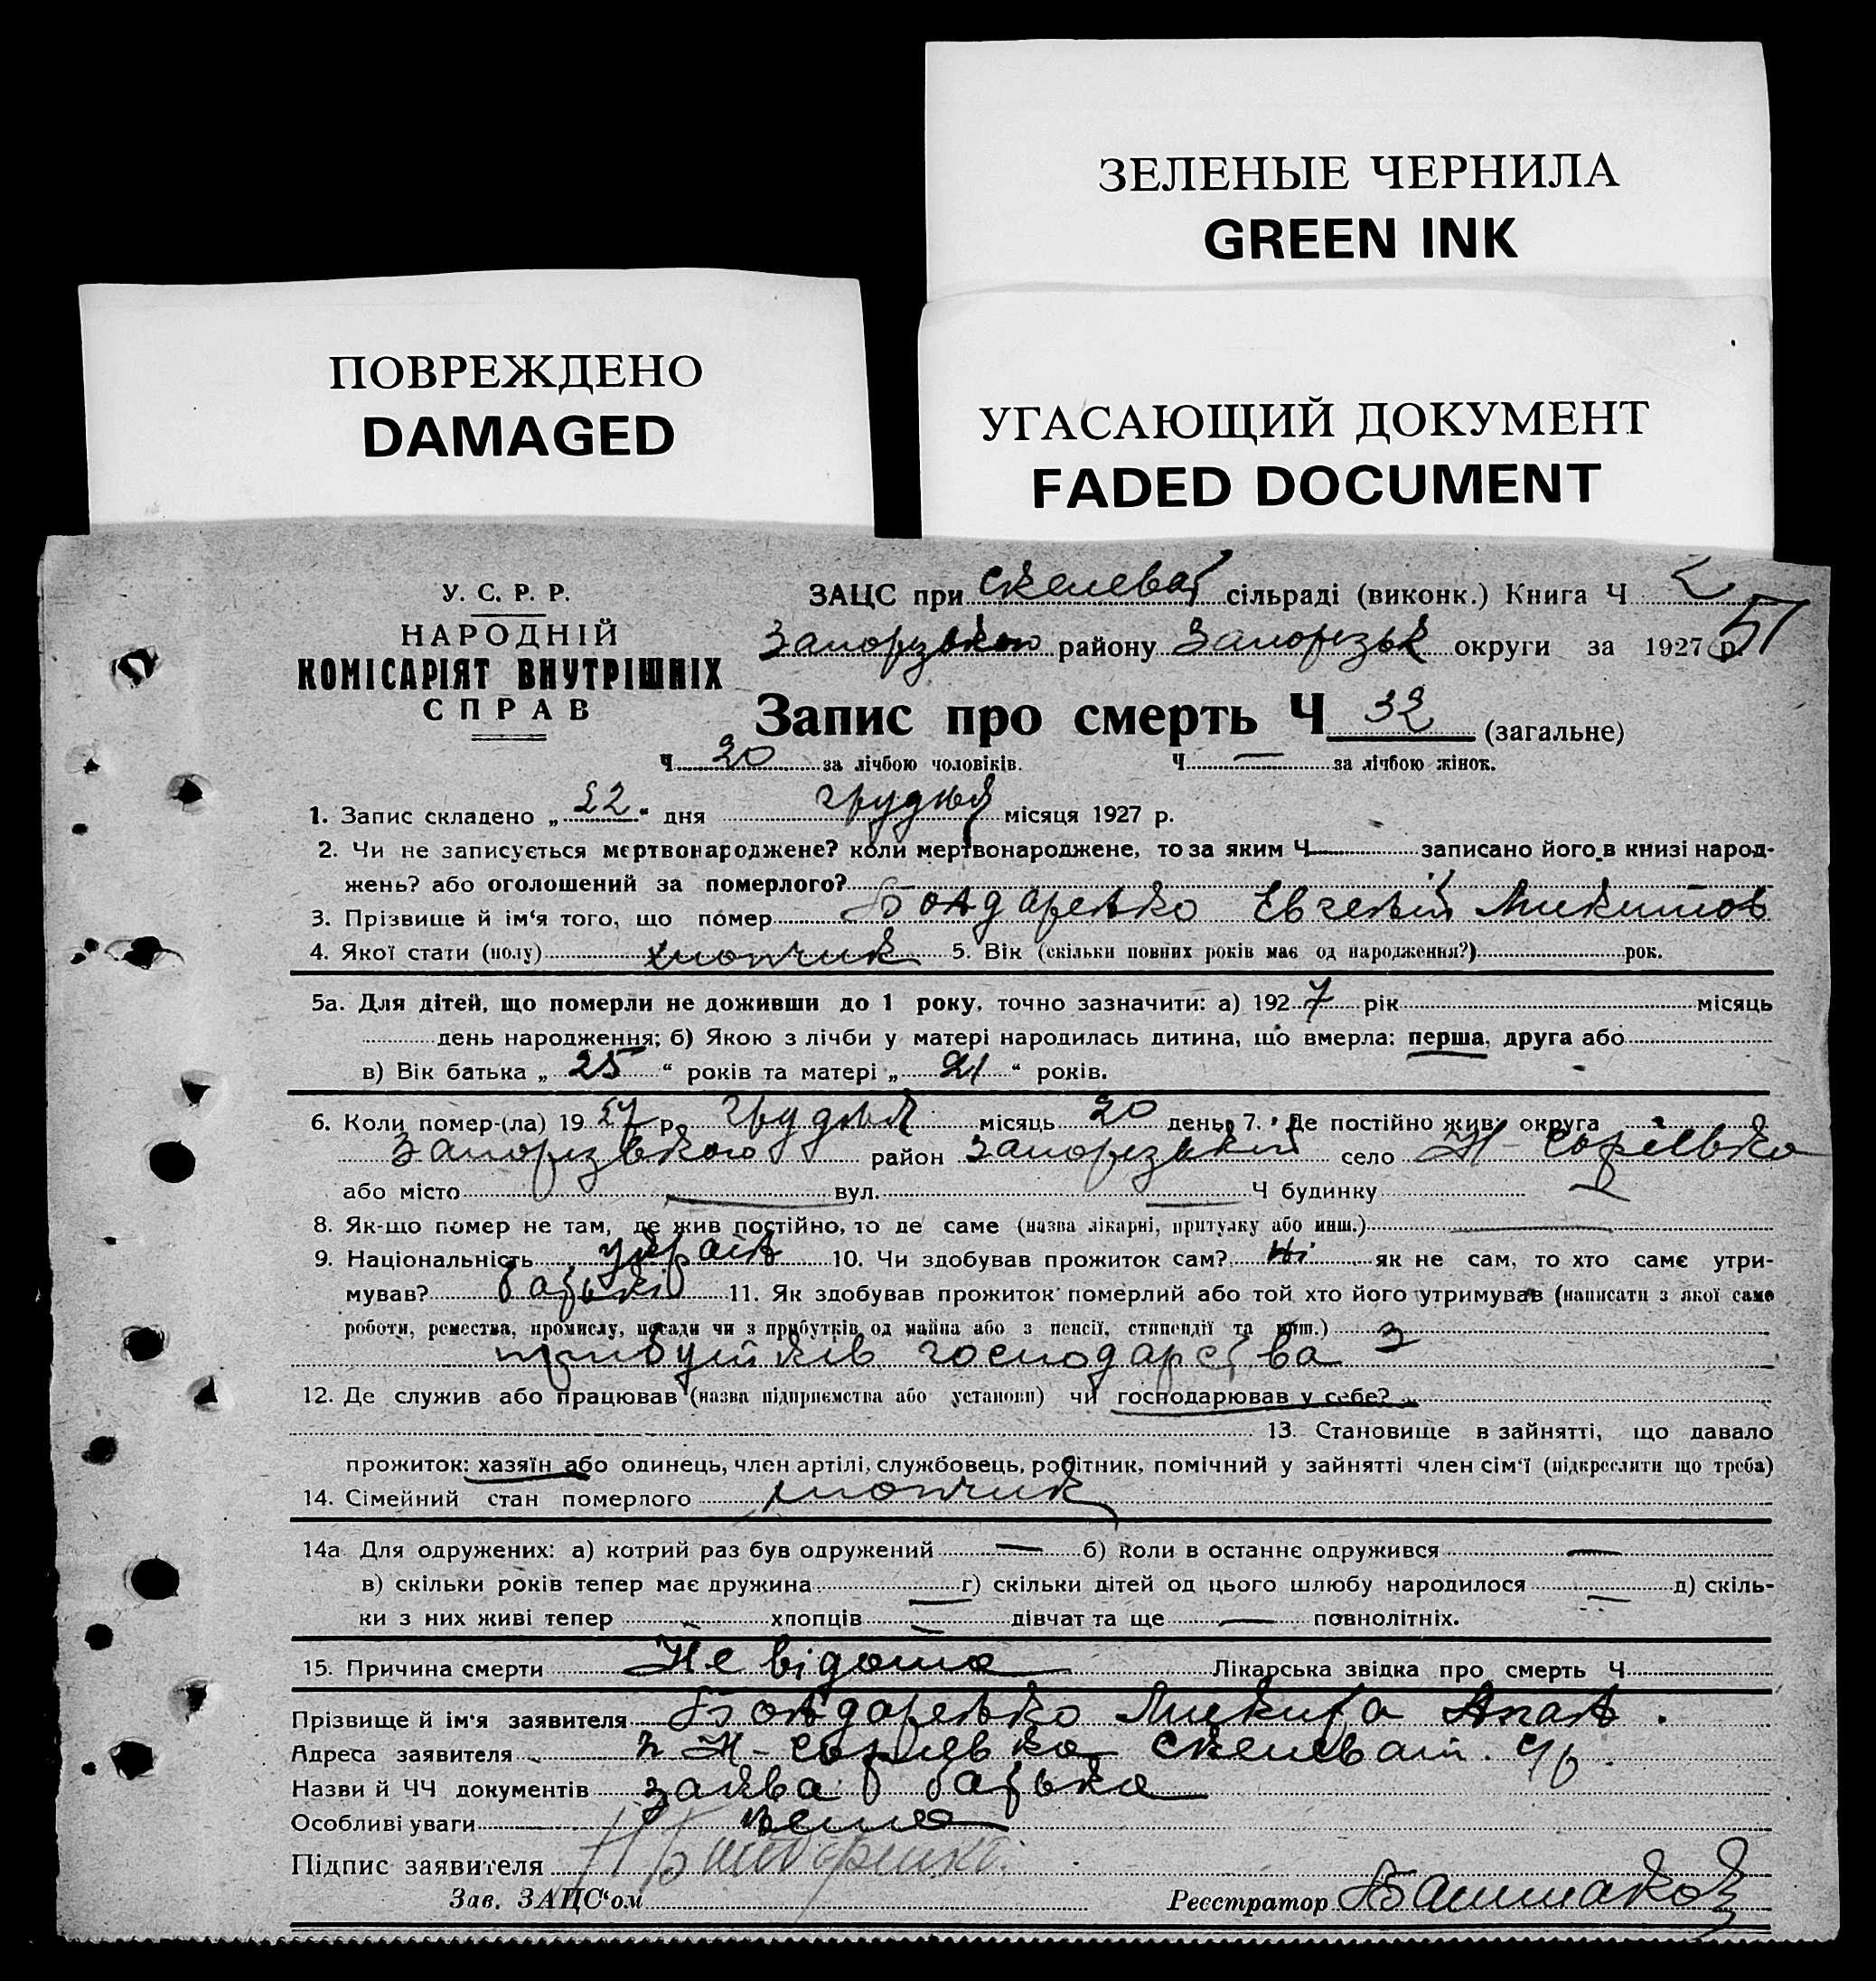 ЗЕЛЕНЫЕ ЧЕРНИЛА
GREEN INK
ПОВРЕЖДЕНО
DAMAGED
УГАСАЮЩИЙ ДОКУМЕНТ
FADED DOCUMENT
У. С. Р. Р.
НАРОДНІЙ
КОМІСАРІЯТ ВНУТРІШНІХ
СПРАВ
ЗАЦС при Скелеват сільраді (виконк.) Книга Ч 2
51
Запорізького району Запорізьк округи за 1927 р.
Запис про смерть Ч 32 (загальне)
Ч 20 за лічбою чоловіків. Ч — за лічбою жінок.
1. Запис складено „ 22 “ дня грудня місяця 1927 р.
2. Чи не записується мертвонароджене? коли мертвонароджене, то за яким Ч записано його в книзі народ-
жень? або оголошений за померлого?
3. Прізвище й ім'я того, що помер Бондаренко Евгеній Микитов
4. Якої стати (полу) хлопчик 5. Вік (скільки повних років має од народження?) рок.
5а. Для дітей, що померли не доживши до 1 року, точно зазначити: а) 1927 рік місяць
день народження; б) Якою з лічби у матері народилась дитина, що вмерла: перша, друга або
в) Вік батька „ 25 “ років та матері „ 21 “ років.
6. Коли помер-(ла) 19 27 р. грудня місяць 20 день 7. Де постійно жив: округа
Запорізького район Запорізький село Н-
або місто — вул. — Ч будинку —
8. Як-що помер не там, де жив постійно, то де саме (назва лікарні, притулку або инш.) —
9. Національність україн 10. Чи здобував прожиток сам? Ні як не сам, то хто саме утри-
мував? батькі 11. Як здобував прожиток померлий або той хто його утримував (написати з якої саме
роботи, ремества, промислу, посади чи з прибутків од майна або з пенсії, стипендії та инш.) з
прибутків господарства
12. Де служив або працював (назва підприємства або установи) чи господарював у себе?
13. Становище в зайнятті, що давало
прожиток: хазяїн або одинець, член артілі, службовець, робітник, помічний у зайнятті член сім'ї (підкреслити що треба)
14. Сімейний стан померлого хлопчик
14а Для одружених: а) котрий раз був одружений — б) коли в останнє одружився —
в) скільки років тепер має дружина — г) скільки дітей од цього шлюбу народилося — д) скіль-
ки з них живі тепер — хлопців — дівчат та ще — повнолітніх.
15. Причина смерти Не відома Лікарська звідка про смерть Ч
Прізвище й ім'я заявителя Бондаренко Микита
Адреса заявителя Н- Скелеват.
Назви й ЧЧ документів заява батька
Особливі уваги нема
Підпис заявителя Н Бондаренко
Зав. ЗАЦС'ом Реєстратор Башмаков